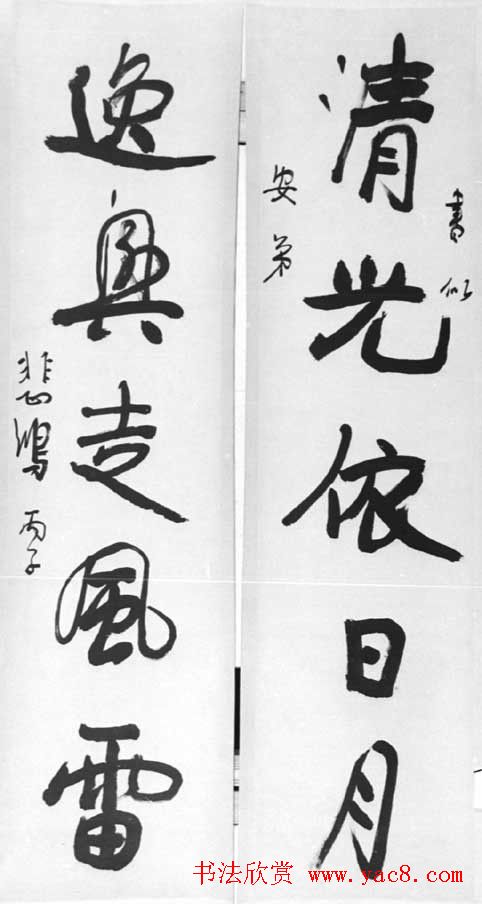 清光依日月
書似
安弟
逸興走風雷
悲鴻 丙子
书法欣赏 www.yac8.com